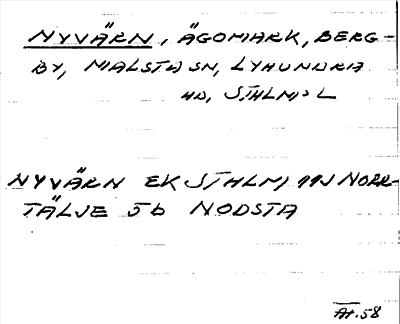 NYVÄRN, ÄGOMARK, BERG-
BY, MALSTA SN, LYHUNDRA
HD, STHLMS L
NYVÄRN EK STHLM 11J NORR-
TÄLJE 5b NODSTA
At.58